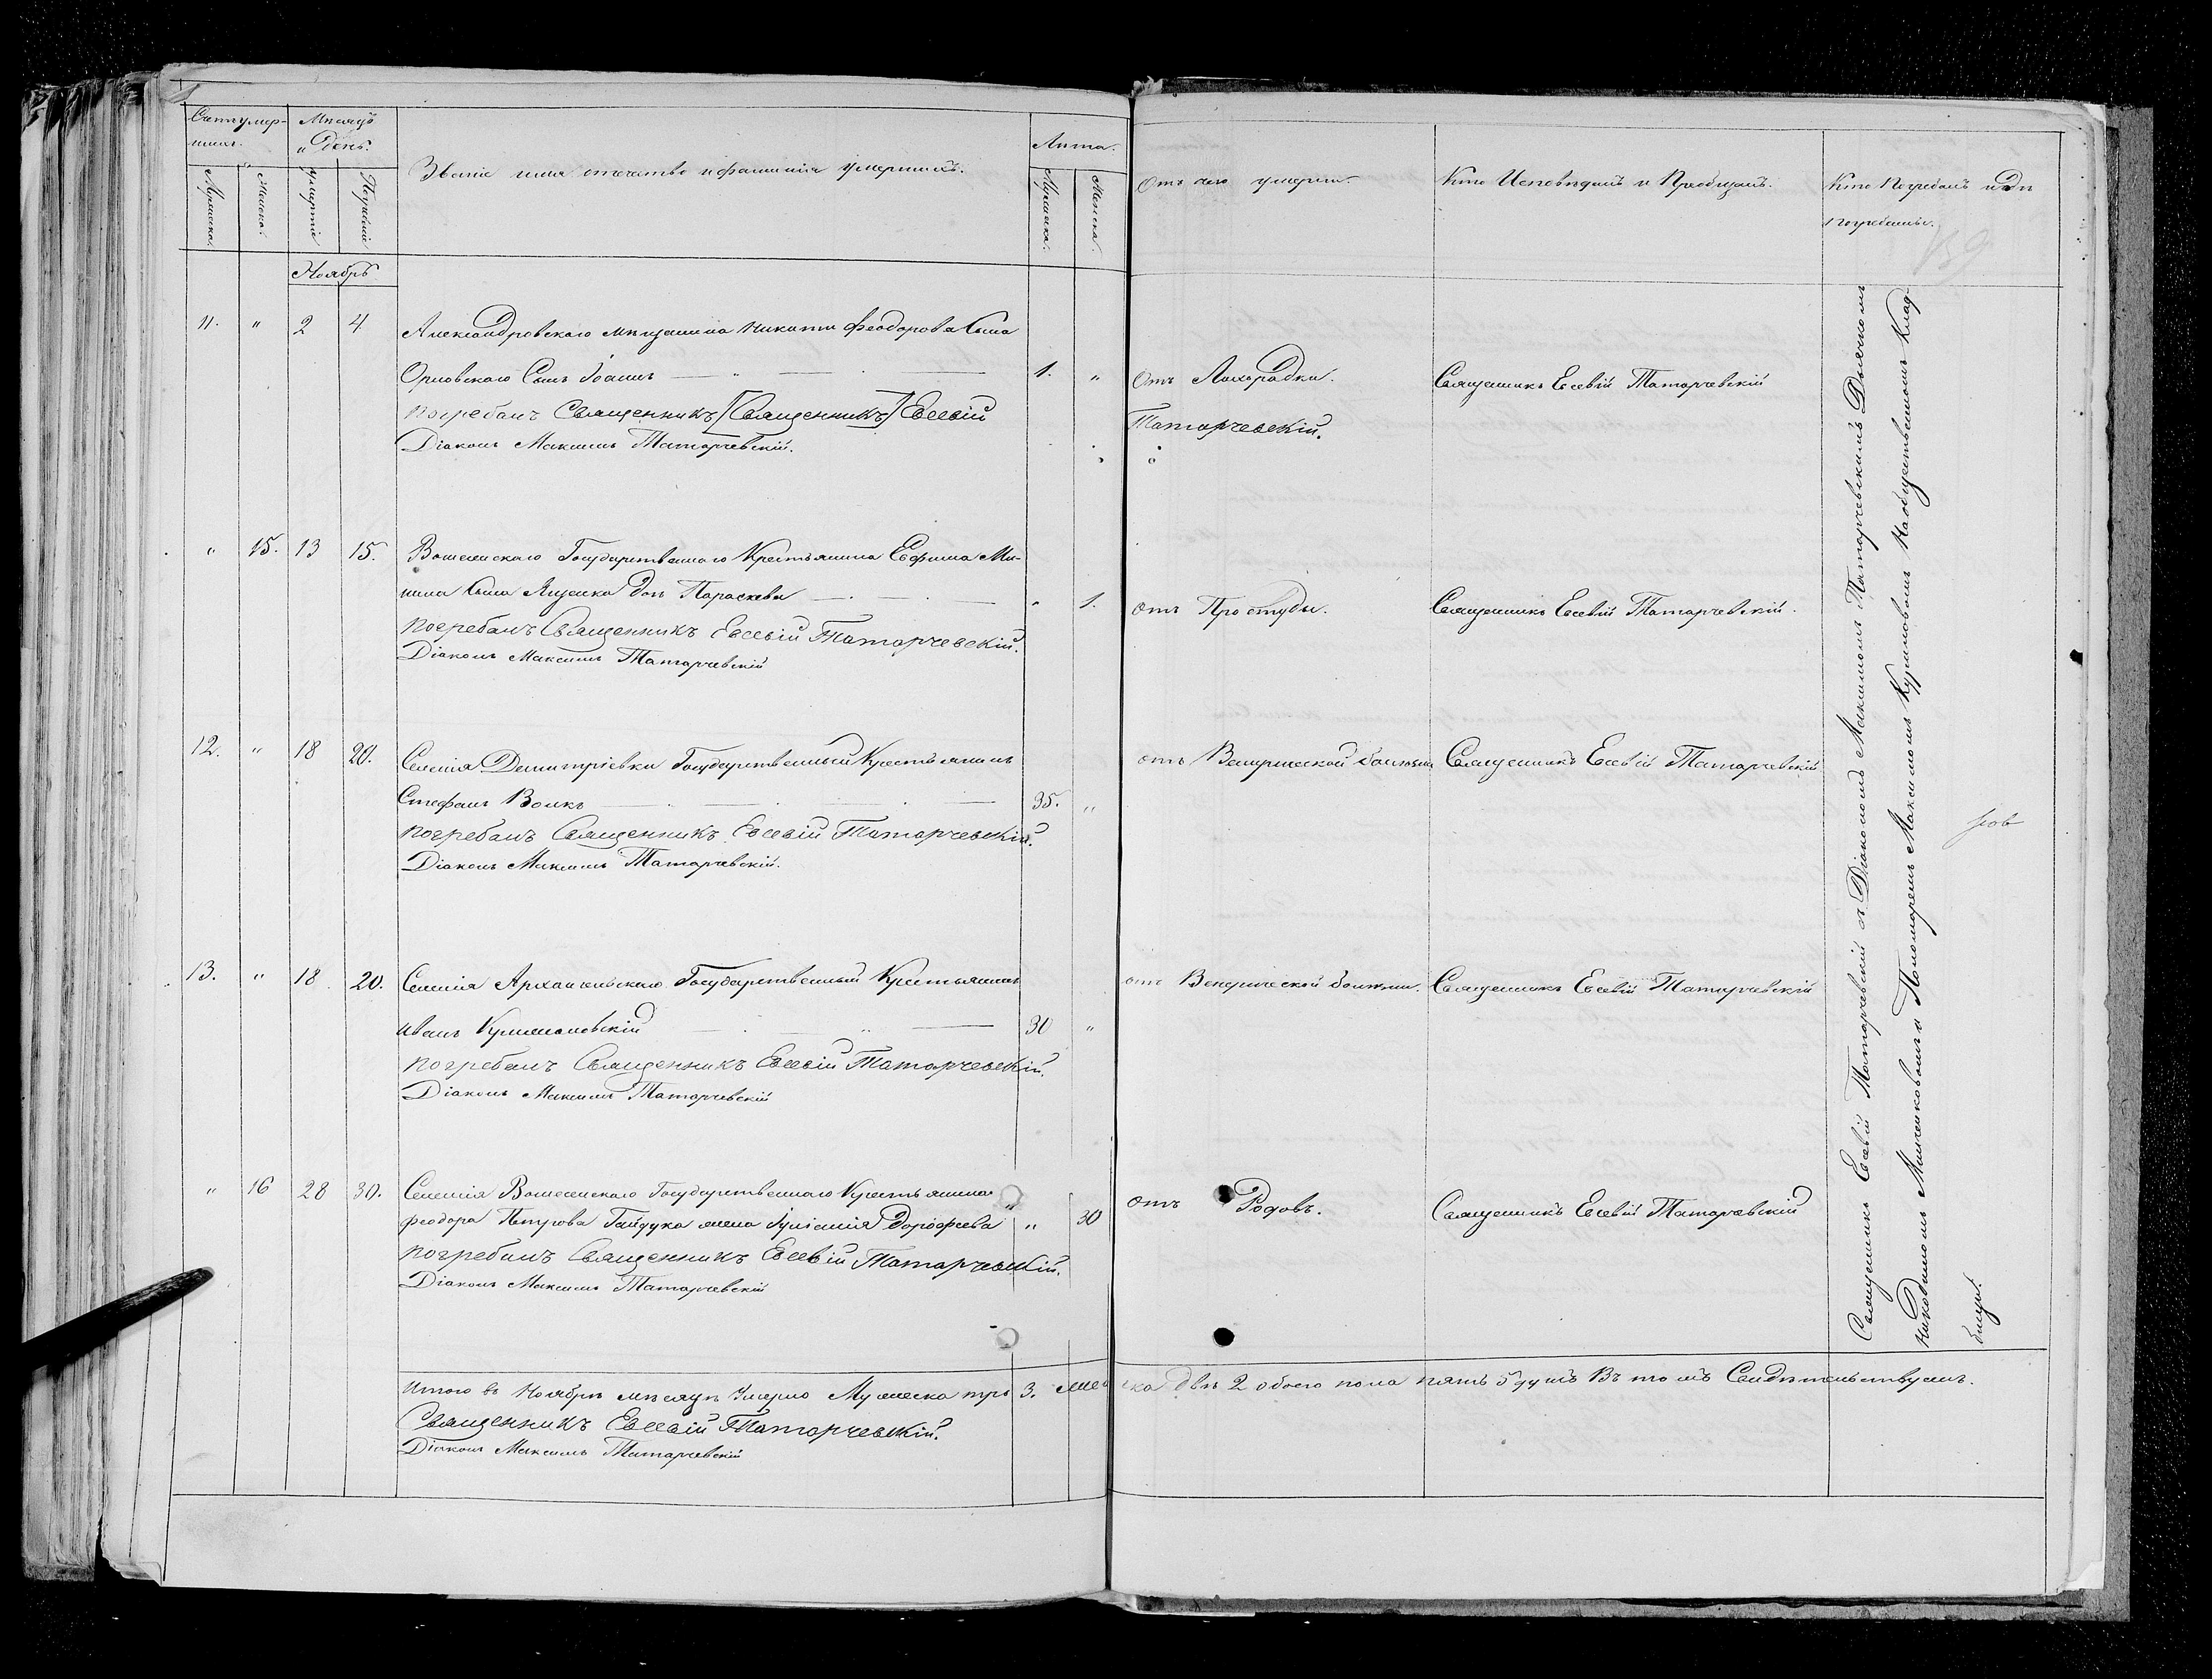 Счетъ умер-
шихъ.
Мѣсяцъ
и День.
Званіе имя отечество и фамилія умершихъ.
Лѣта.
Отъ чего умерли.
Кто Исповѣдалъ и Пріобщалъ.
Кто Погребалъ и гдѣ
погребены.
Мужеска.
Женска.
Умертіе
Погребеніе
Мужеска.
Женска.
Ноябрь
11. " 2 4 Александровскаго мѣщанина Никиты Феодорова Сына
Орловскаго Сынъ Іоаннъ 1. " Отъ Лихорадки. Священникъ Евсевій Татарчевскій
погребалъ Священникъ [Священникъ] Евсевій Татарчевскій.
Діаконъ Максимъ Татарчевскій.
" 15. 13 15. Государственнаго Крестьянина Евфима Ми-
нина Сына Яценка дочь Параскева " 1. отъ Простуды. Священникъ Евсевій Татарчевскій.
погребалъ Священникъ Евсевій Татарчевскій.
Діаконъ Максимъ Татарчевскій
12. " 18 20. Селенія Димитріевки Государственный Крестьянинъ отъ Венерической болѣзни Священникъ Евсевій Татарчевскій
Стефанъ Волкъ 35. "
погребалъ Священникъ Евсевій Татарчевскій.
Діаконъ Максимъ Татарчевскій.
13. " 18 20. Селенія Архангельскаго Государственный Крестьянинъ отъ Венерической болѣзни. Священникъ Евсевій Татарчевскій
Иванъ 30 "
погребалъ Священникъ Евсевій Татарчевскій.
Діаконъ Максимъ Татарчевскій
" 16 28 30. Селенія Государственнаго Крестьянина
Феодора Петрова Гайдука жена Іуліанія Дорофеева " 30 отъ Родовъ. Священникъ Евсевій Татарчевскій
погребалъ Священникъ Евсевій Татарчевскій.
Діаконъ Максимъ Татарчевскій
Священникъ Евсевій Татарчевскій съ Діакономъ Максимомъ Татарчевскимъ Дьячкомъ
Никодимомъ и Пономаремъ Максимомъ На общественномъ Клад-
бищѣ.
Итого въ Ноябрѣ мѣсяцѣ Умерло Мужеска три 3. женска двѣ 2 обоего пола пять 5 душъ Въ томъ Свидѣтельствуемъ.
Священникъ Евсевій Татарчевскій.
Діаконъ Максимъ Татарчевскій